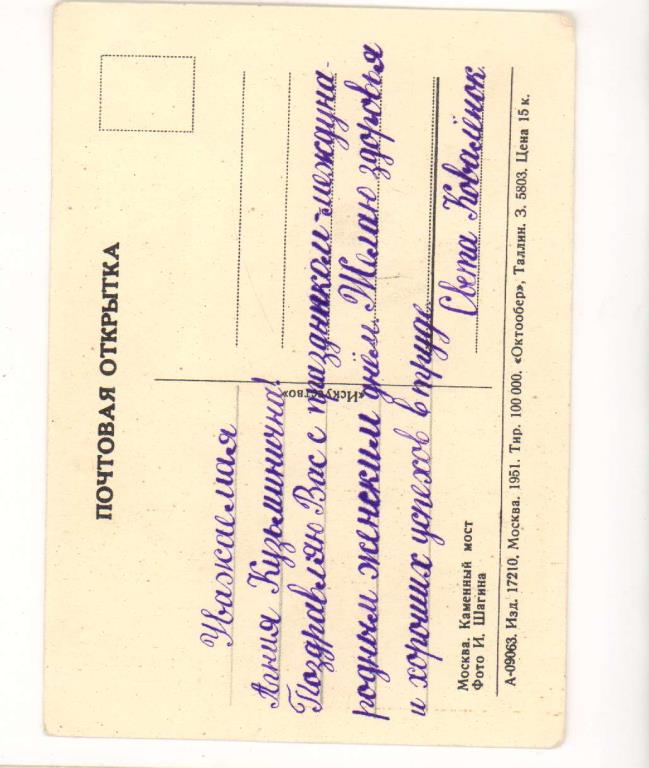 ПОЧТОВАЯ ОТКРЫТКА
Уважаемая
Агния Кузьминична!
Поздравляю Вас с праздником-междуна-
родным женским днём. Желаю здоровья
и хороших успехов в труде.
Света Ковалёнок
«Искусство»
Москва. Каменный мост
Фото И. Шагина
А-09063. Изд. 17210, Москва. 1951. Тир. 100 000. «Октообер», Таллин. З. 5803. Цена 15 к.